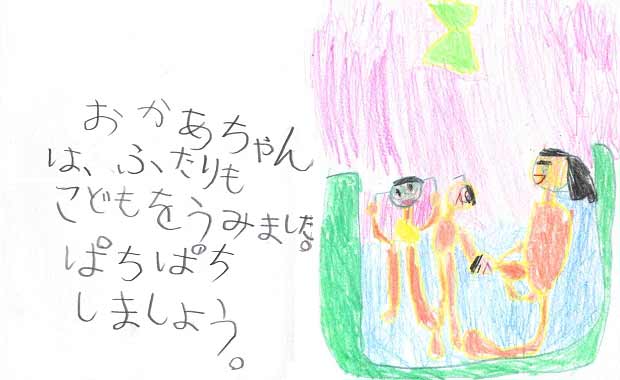 おかあちゃん
は、ふたりも
こどもをうみました。
ぱちぱち
しましょう。